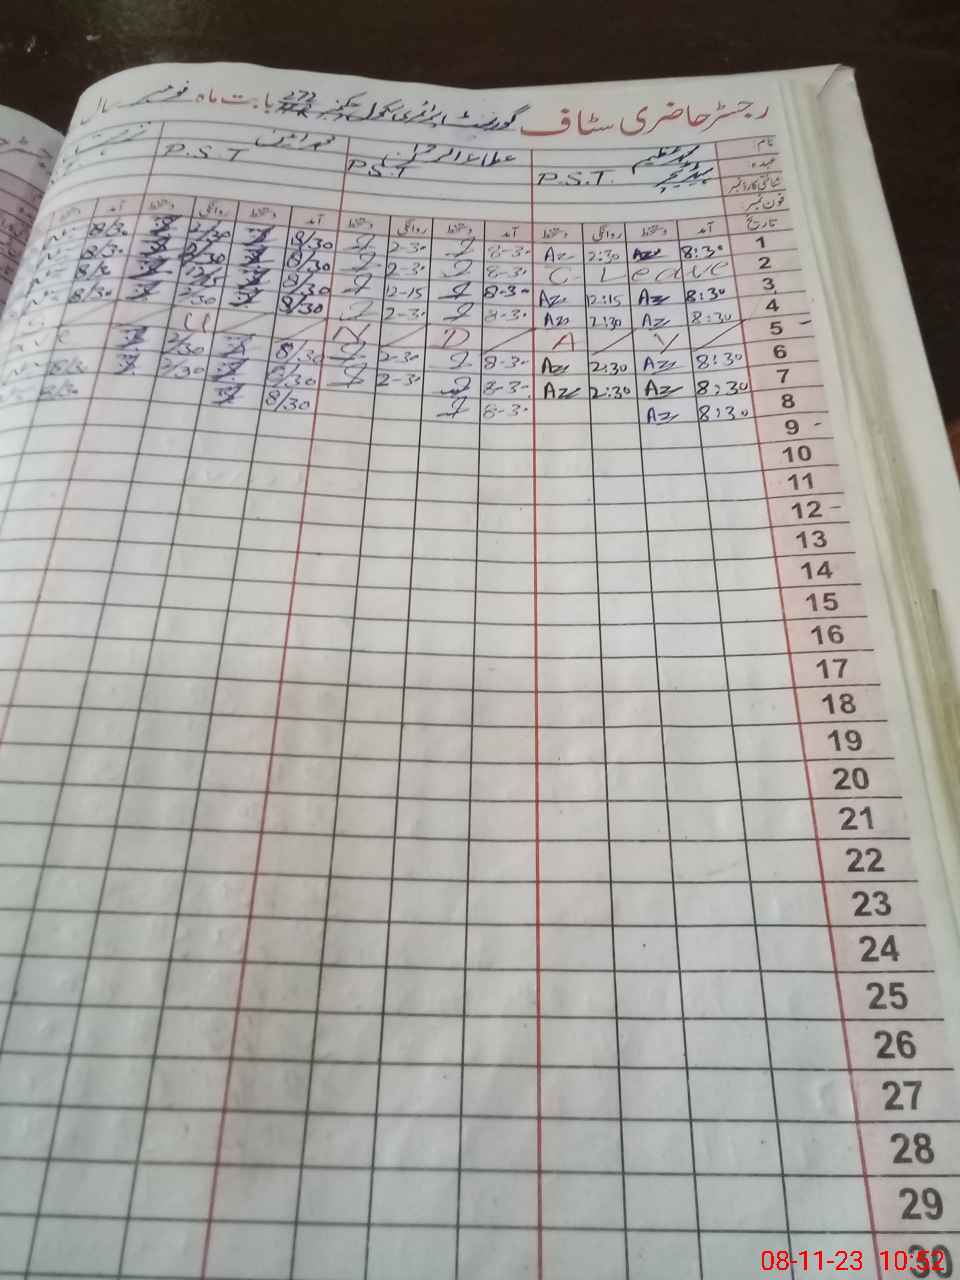 رجسٹر حاضری سٹاف گورنمنٹ پرائمری سکول 272 بابت ماہ نومبر سال
نام محمد عظیم عطاء الرحمن
عہدہ P.S.T. P.S.T P.S.T
شناختی کارڈ نمبر
فون نمبر
تاریخ آمد دستخط روانگی دستخط آمد دستخط روانگی دستخط آمد دستخط روانگی دستخط آمد دستخط
1 8:30 Az 2:30 Az 8-30 2-30 8/30 2/30 8/30
2 C-Leave 8-30 2-30 8/30 2/30 8/30
3 8:30 Az 12:15 Az 8-30 12-15 8/30 12/15 8/30
4 8:30 Az 2:30 Az 8-30 2-30 8/30 2/30 8/30
5 - U N D A Y
6 8:30 Az 2:30 Az 8-30 2-30 8/30 2/30 8/30
7 8:30 Az 2:30 Az 8-30 2-30 8/30 2/30 8/30
8 8:30 Az 8-30 8/30
9 -
10
11
12 -
13
14
15
16
17
18
19
20
21
22
23
24
25
26
27
28
29
30
08-11-23 10:52